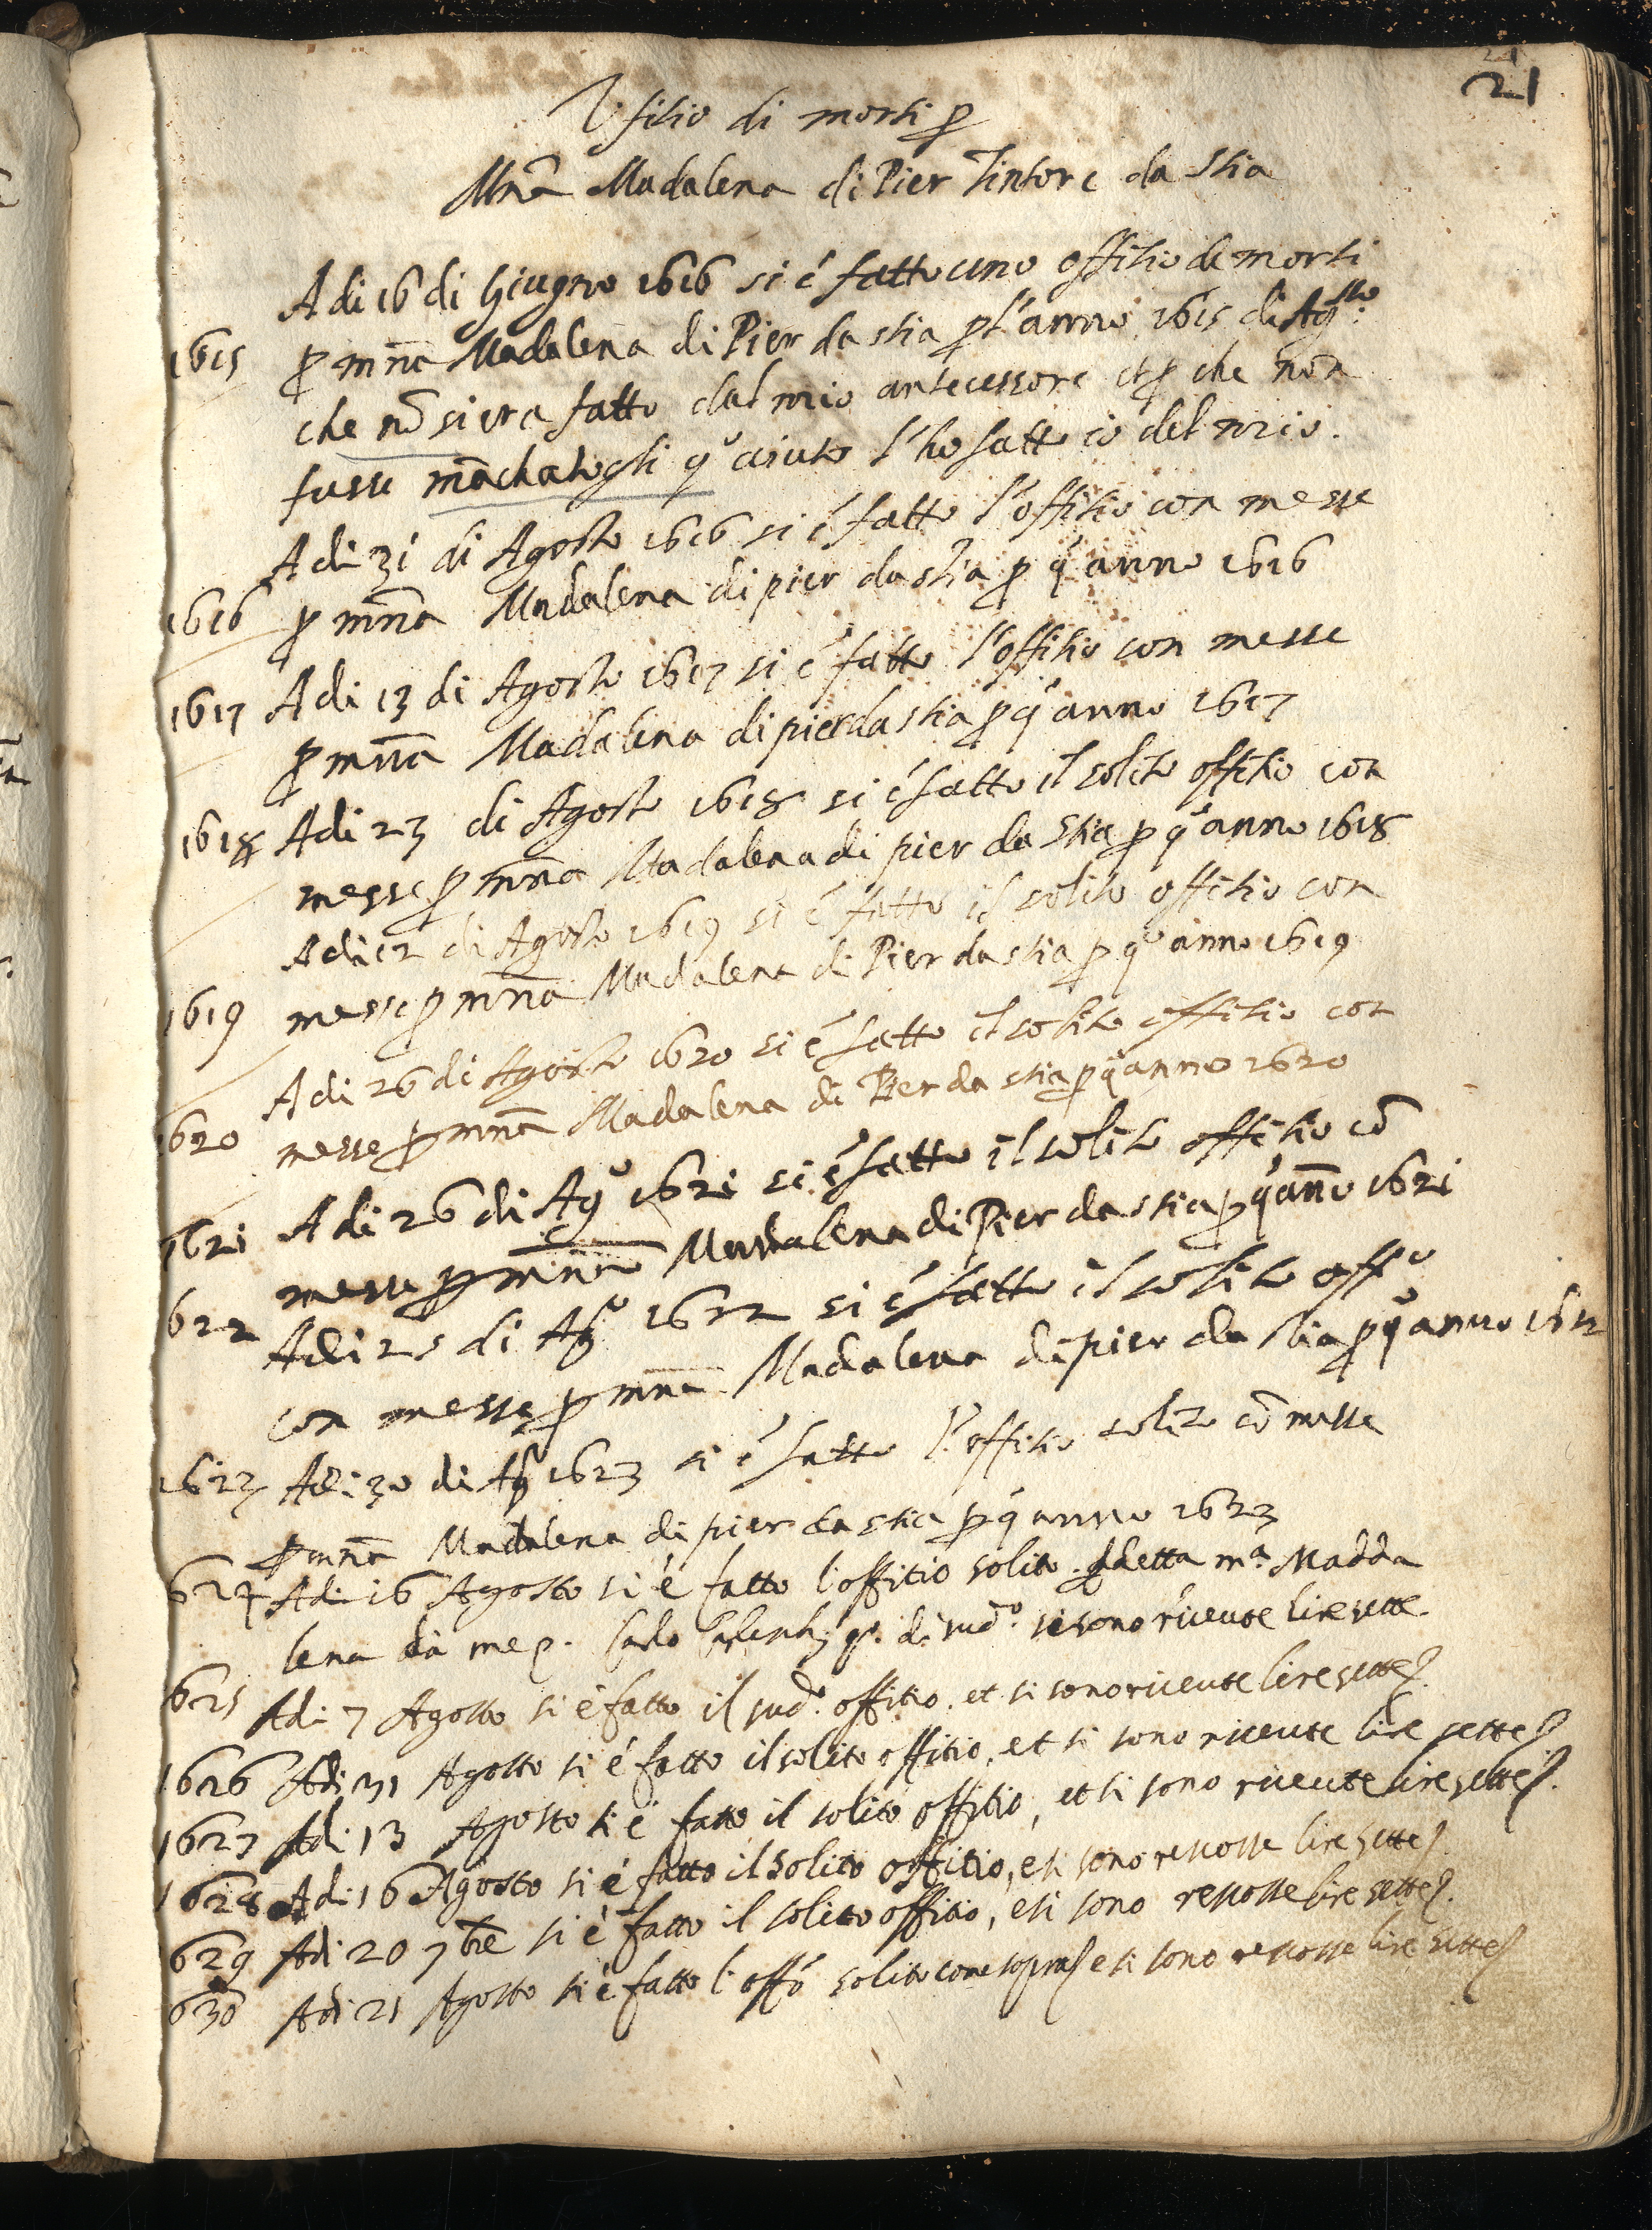 21
21
Ufitio di morti ꝑ
Mn̄a Madalena di Pier Tintore da Stia
A di 16 di Giugno 1616 si é fatto uno offitio de morti
1615 ꝑ mn̄a Madalena di Pier da stia ꝑ l'anno 1615 di Agsto.
che nō si era fatto dal mio antecessore et ꝑ che non
fusse māchatogli qo aiuto l'ho fatto io del mio.
A di 31 di Agosto 1616 si é fatto l'offitio con messe
1616 ꝑ mn̄a Madalena di pier da stia ꝑ qo anno 1616
1617 A di 13 di Agosto 1617 si é fatto l'offitio con messe
ꝑ mn̄a Madalena di pier da stia ꝑ qo anno 1617
1618 A di 23 di Agosto 1618 si é fatto il solito offitio con
messe ꝑ mn̄a Madalena di pier da Stia ꝑ qo anno 1618
A di 12 di Agosto 1619 si é fatto il solito offitio con
1619 messe ꝑ mn̄a Madalena di Pier da stia ꝑ qo anno 1619
A di 26 di Agosto 1620 si é fatto il solito offitio con
1620 messe ꝑ mn̄a Madalena di Pier da stia ꝑ qo anno 1620
1621 A di 26 di Ago 1621 si é fatto il solito offitio cō
messe ꝑ mn̄a Madalena di Pier da stia ꝑ qo anno 1621
622 A di 25 di Ago 1622 si é fatto il solito offo
con messe ꝑ mn̄a Madalena di pier da stia ꝑ qo anno 1622
1623 A di 30 di Ago 1623 si é fatto l'offitio solito cō messe
ꝑ mn̄a Madalena di pier da stia ꝑ qo anno 1623
624 Adi 16 Agosto si é fatto l'offitio solito ꝑ detta ma. Madda
lena da me p. di sudo. si sono riceute lire sette.
625 Adi 7 Agosto si é fatto il sudo. offitio. et si sono riceute lire sette
1626 Adi 31 Agosto si é fatto il solito offitio, et si sono riceute lire sette
1627 Adi 13 Agosto si é fatto il solito offitio, et si sono riceute lire sette
1628 Adi 16 Agosto si é fatto il solito offitio, e si sono rescosse lire sette
629 Adi 20 7bre si é fatto il solito offitio, e si sono rescosse lire sette
630 Adi 21 Agosto si é fatto l'offo solito come sopra e si sono rescosse lire sette